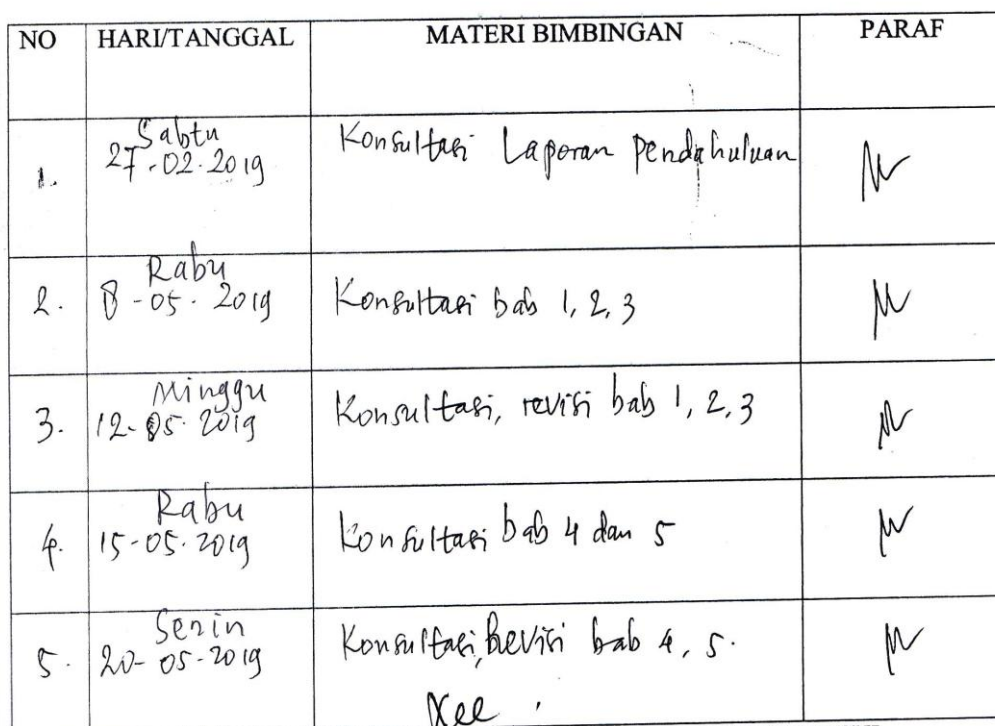 NO HARI/TANGGAL MATERI BIMBINGAN PARAF
1. Sabtu
27-02-2019 Konsultasi Laporan Pendahuluan
2. Rabu
8-05-2019 Konsultasi bab 1, 2, 3
3. Minggu
12-05-2019 Konsultasi, revisi bab 1, 2, 3
4. Rabu
15-05-2019 Konsultasi bab 4 dan 5
5. Senin
20-05-2019 Konsultasi, Revisi bab 4, 5.